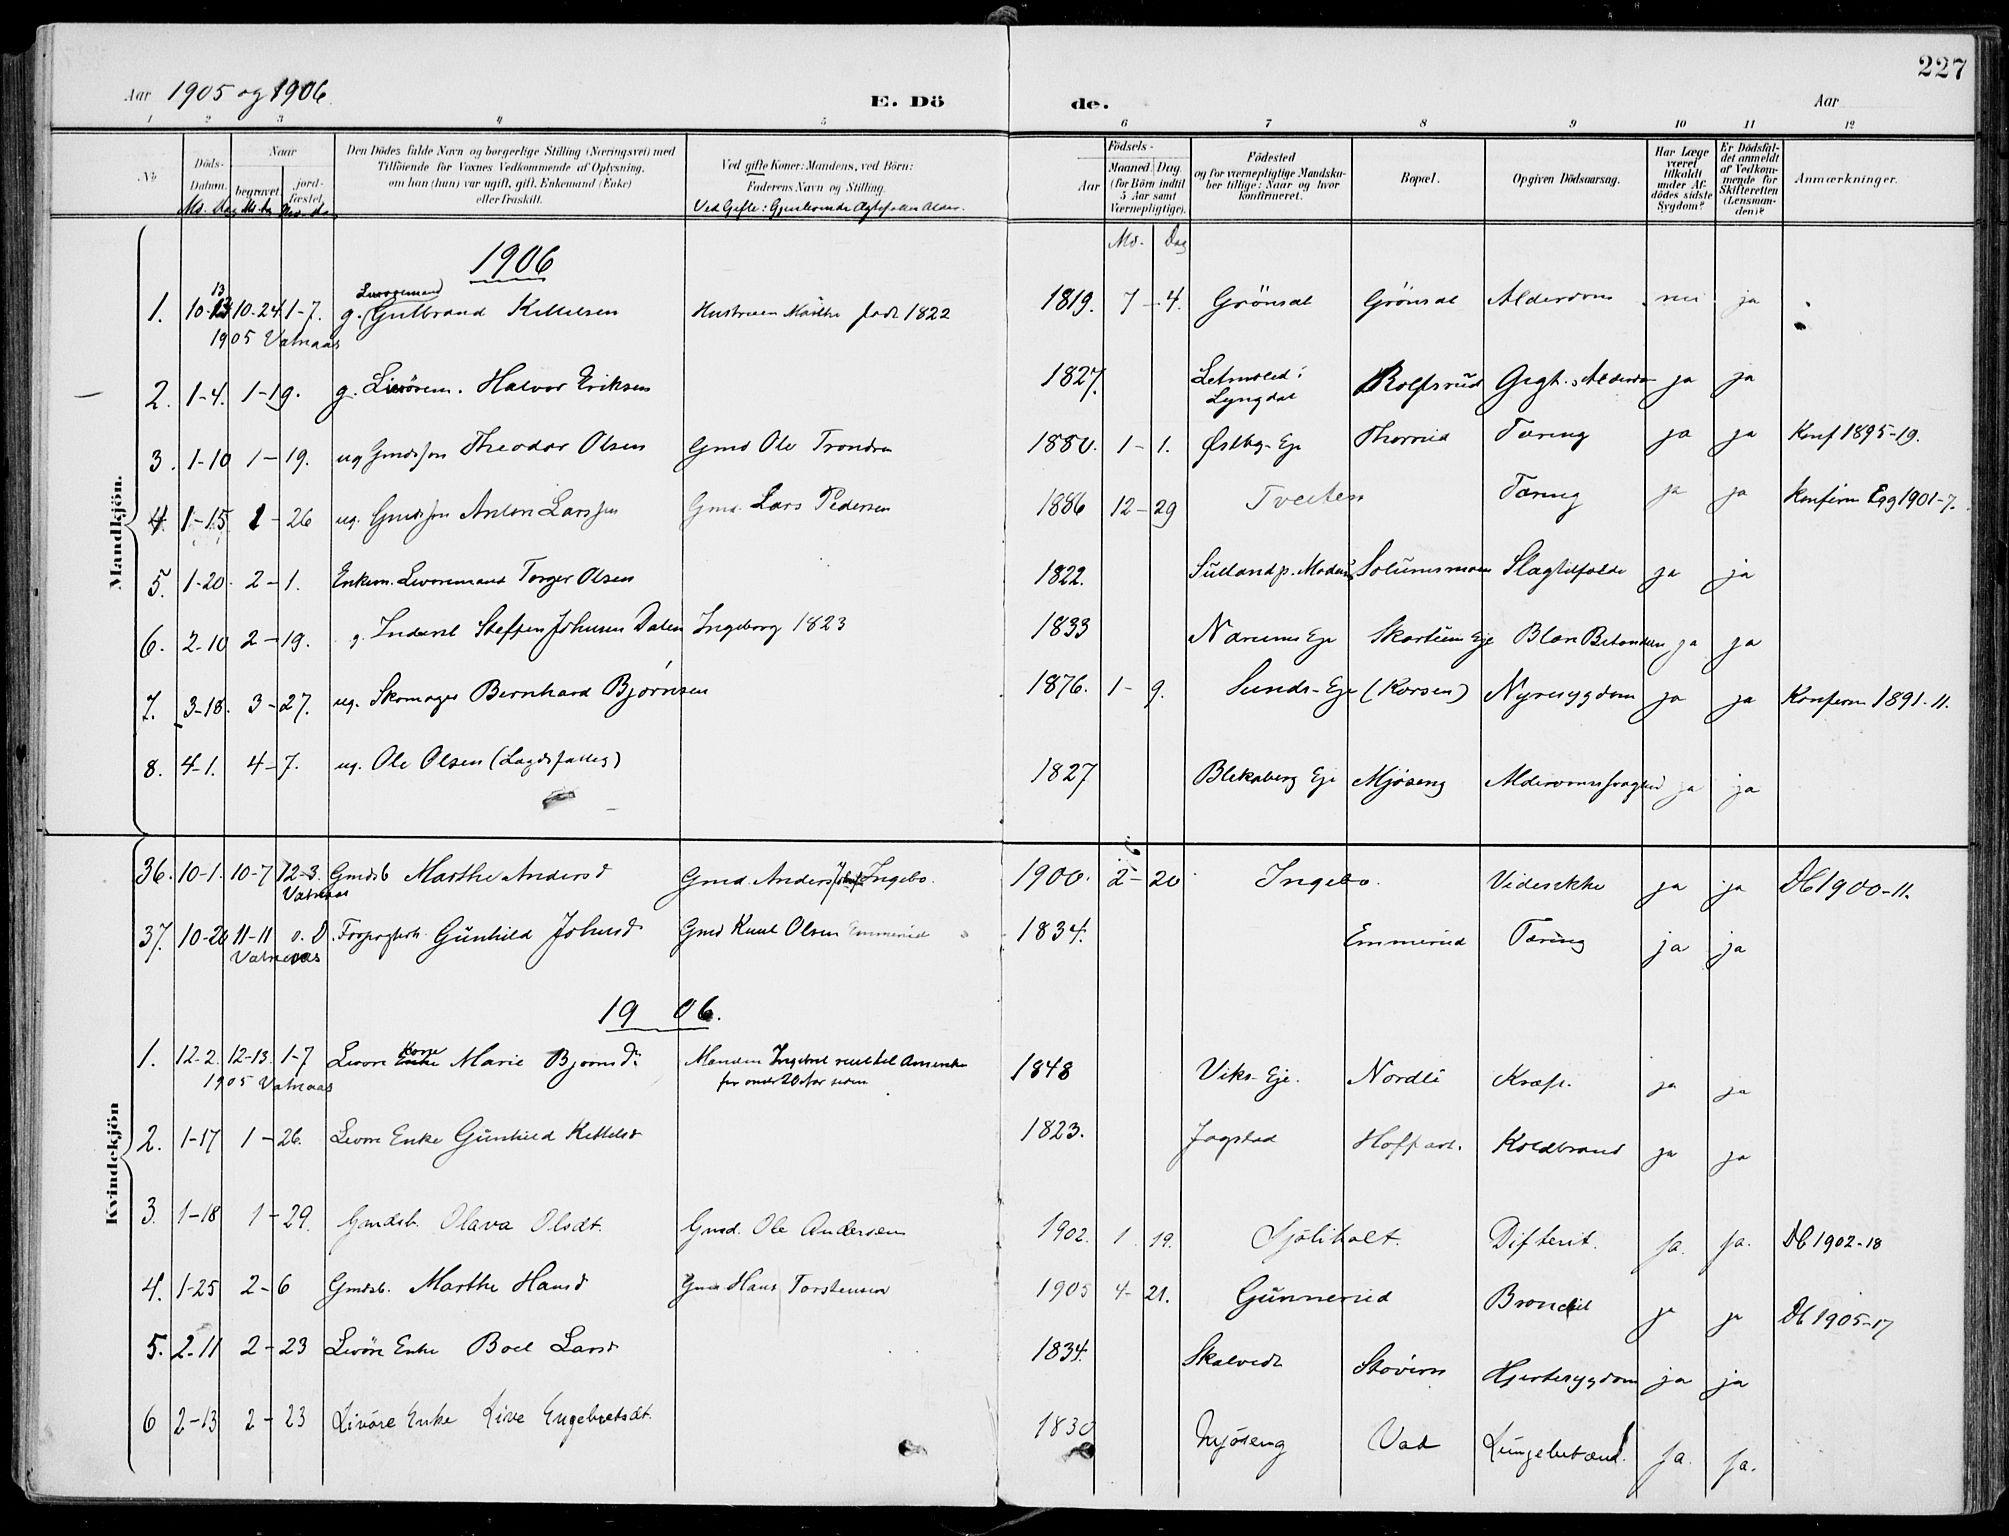 227
Aar 1905 og 1906.
E. Dö
de.
Aar
1 2 3 4 5 6 7 8 9 10 11 12
No
Döds-Datum.
Md. Dag
Naar
begravet.
Md. Dag
jord-fæstet.
Md. Dag
Den Dödes fulde Navn og borgerlige Stilling (Næringsvei) med
Tilföiende for Voxnes Vedkommende af Oplysning,
om han (hun) var ugift, gift, Enkemand (Enke)
eller Fraskilt.
Ved gifte Koner: Mandens, ved Börn:
Faderens Navn og Stilling.
Ved Gifte: Gjenlevende Ægtefælles Alder.
Födsels-
Aar
Maaned
Dag
(for Börn indtil
5 Aar samt
Værnepligtige).
Md. Dag
Födested
og for værnepligtige Mandska-
ber tillige: Naar og hvor
konfirmeret.
Bopæl.
Opgiven Dödsaarsag.
Har Læge
været
tilkaldt
under Af-
dødes sidste
Sygdom?
Er Dödsfal-
det anmeldt
af Vedkom-
mende for
Skifteretten
(Lensman-
den)?
Anmærkninger.
Mandkjön.
1906
1. 10-13 10-24 1-7. g. Gulbrand Kittelsen Hustruen Marthe født 1822 1819. 7-4. Grönsal Grönsal Alderdom nei ja
1905 Vatnaas
2. 1-4. 1-19. g. Halvor Eriksen 1827. Lyngdal Rolfsrud ja ja
3. 1-10 1-19. ug Gmdssøn Theodor Olsen Gmd Ole 1880. 1-1. Østby-Eje Tæring ja ja Konf 1895-19.
4. 1-15. 1-26 ug. Gmdssøn Anton Larssen Gmd. Lars Pedersen 1886 12-29 Tveiten Tæring ja ja Konfirm Egg 1901-7.
5. 1-20. 2-1. Enkem. Torger Olsen 1822. Solumsmoen Slagtilfælde ja ja
6. 2-10 2-19. g. Inderst Steffen Johnsen Dalen Ingeborg 1823 1833 Nærums Eje Skartum Eje ja ja
7. 3-18. 3-27. ug. Skomager Bernhard Bjørnsen 1876. 1-9. Sunds-Eje (Korsen) Nyresygdom ja ja Konfirm 1891-11.
8. 4-1. 4-7. ug. Ole Olsen (Lægdsfattig) 1827 Blekaberg Eje Mjøseng ja ja
Kvindekjön
36. 10-1. 10-7 12-3. Gmdsb Marthe Andersd Gmd. Anders Ingebo. 1900. 2-20 Ingebo. Vides ikke ja ja Db 1900-11.
Vatnaas
37. 10-20 11-11 s. D. Gunhild Johnsd Gmd Knut Olsen Emmerud 1834. Emmerud Tæring ja ja
Vatnaas
1906.
1. 12-2. 12-13 1-7 Kone Marie Bjørnsd. Manden Ingebret reist til Amerika 1848 Viks-Eje. Nordli Kræft. ja ja
1905 Vatnaas for over 20 Aar siden
2. 1-17 1-26. Enke Gunhild Kittelsd 1823. Jogstad Koldbrand ja ja
3. 1-18 1-29. Gmdsb. Olava Olsdt. Gmd. Ole Andersen 1902. 1. 19. Sjöliholt. Difterit. ja. ja. Db 1902-18
4. 1-25 2-6 Gmdsb. Marthe Hansd Gmd Hans Torstensen 1905 4-21. Gunnerud ja ja Db 1905-17
5. 2-11 2-23 Enke Boel Larsd 1834. Skalvedt Hjertesygdom ja ja
6 2-13 2-23 Enke Live Engebretsdt. 1830 Mjøseng Vad Lungebetænd. ja. ja.